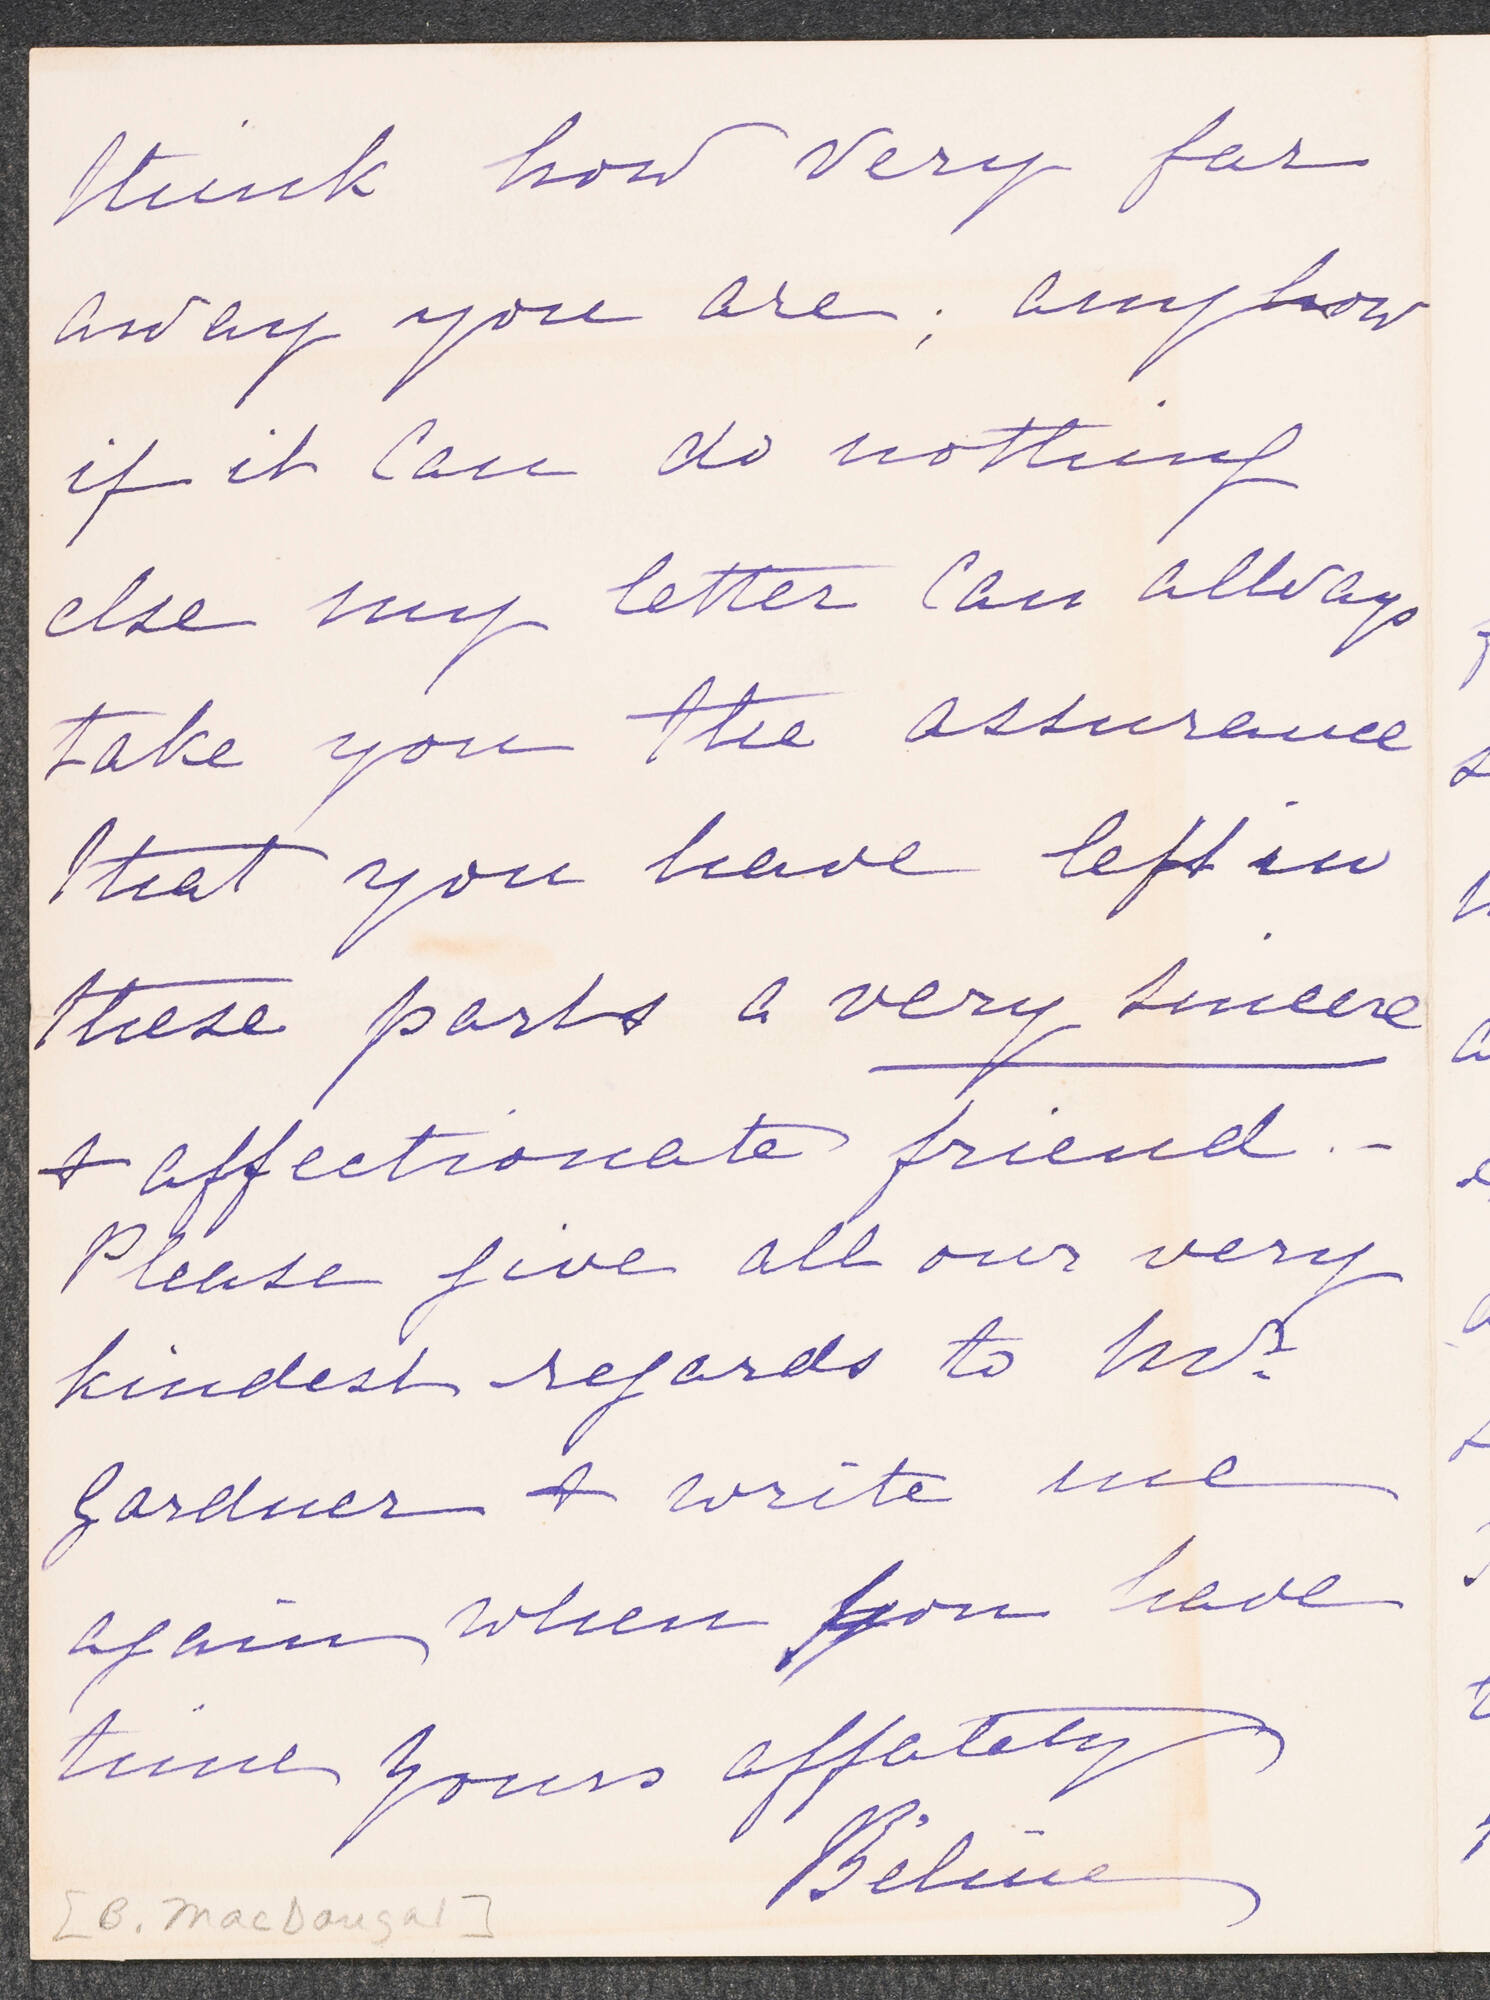 think how very far
away you are; anyhow
if it can do nothing
else my letter can allways
take you the assurance
that you have left in
these parts a very sincere
& affectionate friend. -
Please give all our very
kindest regards to Mr.
Gardner & write me
again when you have
time yours affately
Béline
[B. MacDougal]